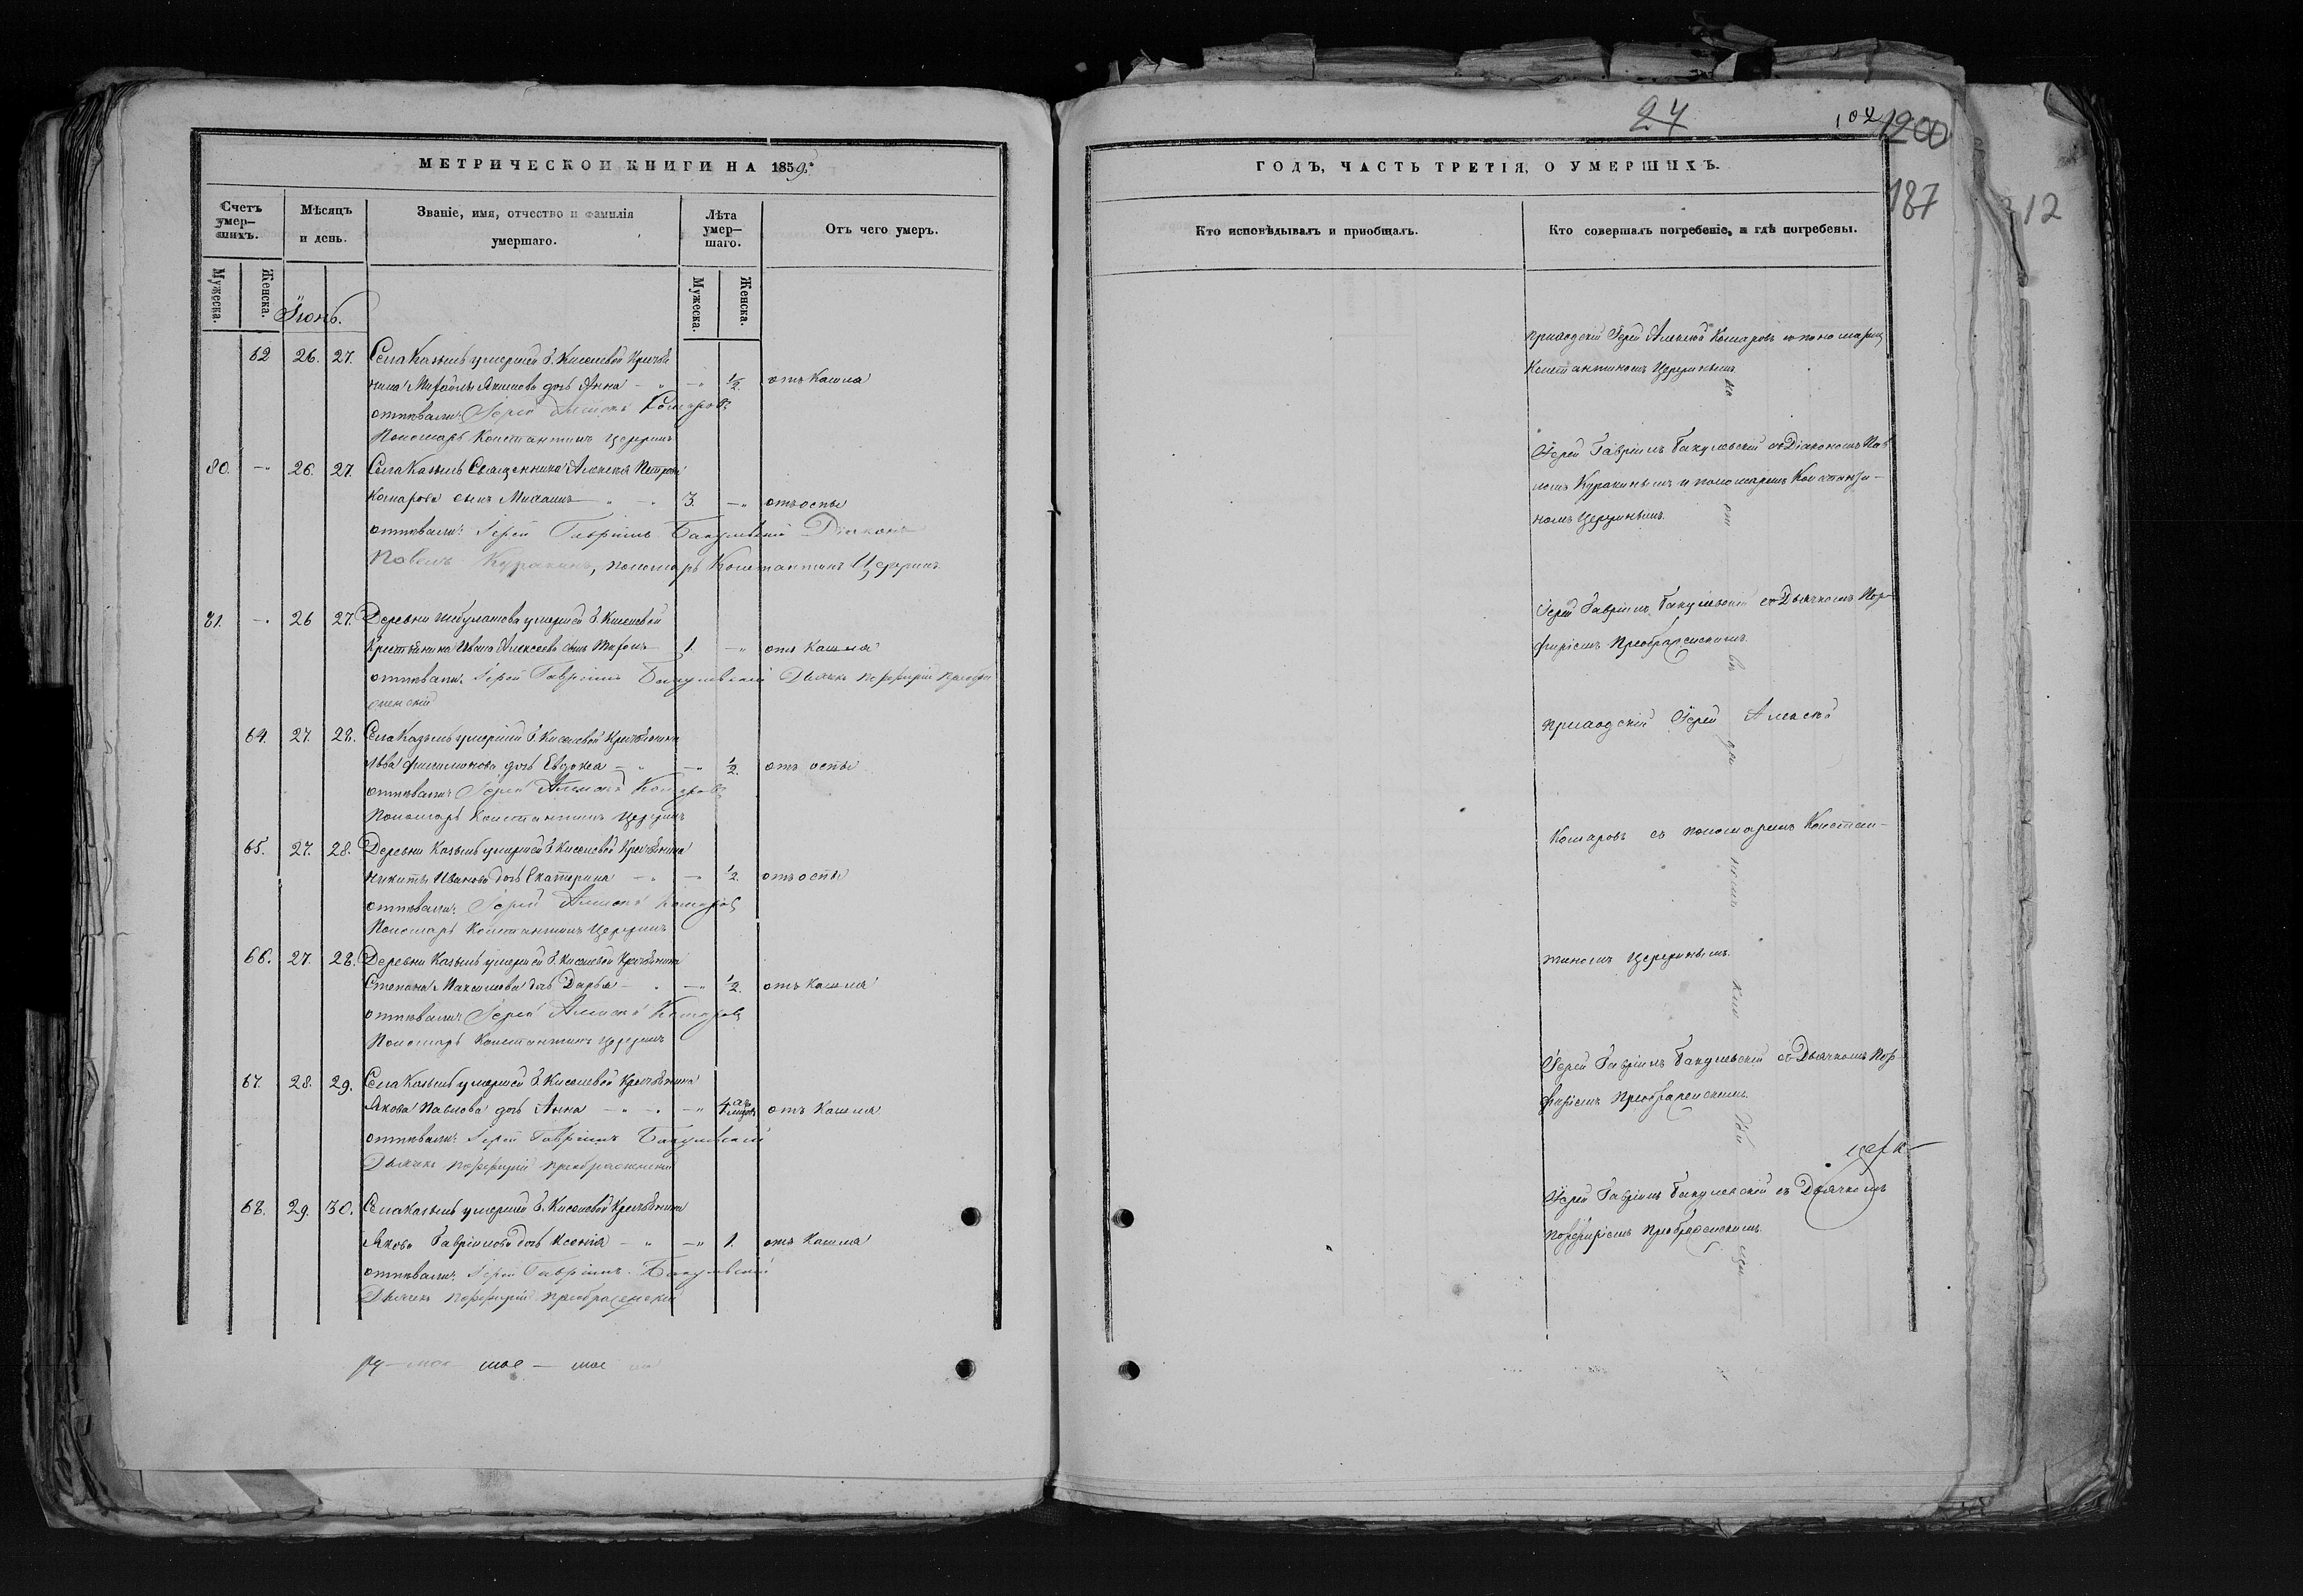 МЕТРИЧЕСКОЙ КНИГИ НА 1859.
Счетъ умер-шихъ.
Мѣсяцъ и день.
Званіе, имя, отчество и фамилія умершаго.
Лѣта умер-шаго.
Отъ чего умеръ.
Мужеска.
Женска.
Мужеска.
Женска.
Іюнь.
62 26. 27. Села Казыль умершей Г. Киселевой Крестья
нина Михаила Акимова дочь Анна 1/2. отъ Кашля
отпѣвали: Іерей Алексѣй Комаровъ
Пономарь Константинъ Церерин
80. 26. 27. Села Казыль Священника Алексѣя Петрова
Комарова сынъ Михаилъ 3. отъ оспы
отпѣвали: Іерей Гавріилъ Бакулевскій Діаконъ
Павелъ Куракинъ, пономарь Константинъ
81. 26 27. Деревни умершей Г. Киселевой
Крестьянина Ивана Алексеева сынъ 1. отъ Кашля
отпѣвали: Іерей Гавріилъ Бакулевскій Дьячекъ Порфирій Преобра
женскій
64. 27. 28. Села Казыль умершей Г. Киселевой Крестьянина
Льва Филимонова дочь Евдокія 1/2. отъ оспы
отпѣвали: Іерей Алексѣй Комаровъ
Пономарь Константинъ
65. 27. 28. Деревни Казыль умершей Г. Киселевой Крестьянина
Никиты Иванова дочь Екатерина 1/2. отъ оспы
отпѣвали: Іерей Алексѣй Комаровъ
Пономарь Константинъ
66. 27. 28. Деревни Казыль умершей Г. Киселевой Крестьянина
Степана Максимова дочь Дарья 1/2. отъ Кашля
отпѣвали: Іерей Алексѣй Комаровъ
Пономарь Константинъ
67. 28. 29. Села Казыль умершей Г. Киселевой Крестьянина
Якова Павлова дочь Анна 4 отъ Кашля
отпѣвали: Іерей Гавріилъ Бакулевскій
Дьячекъ Порфирій Преображенскій
68. 29. 30. Села Казыль умершей Г. Киселевой Крестьянина
Якова Гавріилова дочь Ксенія 1. отъ Кашля
отпѣвали: Іерей Гавріилъ Бакулевскій
Дьячекъ Порфирій Преображенскій
24
102
1200
187
12
ГОДЪ, ЧАСТЬ ТРЕТІЯ, О УМЕРШИХЪ.
Кто исповѣдывалъ и пріобщалъ.
Кто совершалъ погребеніе, и гдѣ погребены.
Приходскій Іерей Алексѣй Комаровъ съ пономаремъ
Константиномъ
Іерей Гавріилъ Бакулевскій съ Діакономъ Пав
ломъ Куракинымъ и пономаремъ Константи-
номъ
Іерей Гавріилъ Бакулевскій съ Дьячкомъ Пор-
фиріемъ Преображенскимъ.
Приходскій Іерей Алексѣй
Комаровъ съ пономаремъ Констан-
тиномъ
Іерей Гавріилъ Бакулевскій съ Дьячкомъ Пор
фиріемъ Преображенскимъ.
Іерей Гавріилъ Бакулевскій съ Дьячкомъ
Порфиріемъ Преображенскимъ.